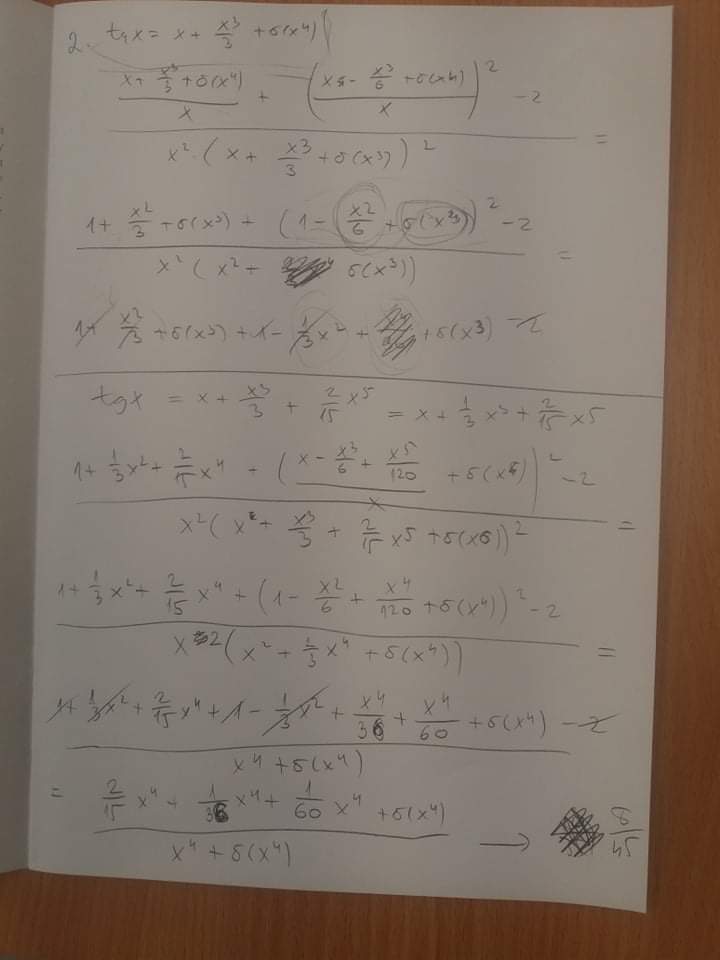 2. tg x = x + x³/3 + σ(x⁴)
((x + x³/3 + σ(x⁴))/x + ((x - x³/6 + σ(x⁴))/x)² - 2) / (x² · (x + x³/3 + σ(x³))²) =
(1 + x²/3 + σ(x³) + (1 - x²/6 + σ(x³))² - 2) / (x² (x² + σ(x³))) =
1 + x²/3 + σ(x³) + 1 - 1/3 x² + σ(x³) - 2
tg x = x + x³/3 + 2/15 x⁵ = x + 1/3 x³ + 2/15 x⁵
(1 + 1/3 x² + 2/15 x⁴ + ((x - x³/6 + x⁵/120)/x + σ(x⁵))² - 2) / (x² (x + x³/3 + 2/15 x⁵ + σ(x⁶))²) =
(1 + 1/3 x² + 2/15 x⁴ + (1 - x²/6 + x⁴/120 + σ(x⁴))² - 2) / (x² (x² + 2/3 x⁴ + σ(x⁴))) =
(1 + 1/3 x² + 2/15 x⁴ + 1 - 1/3 x² + x⁴/36 + x⁴/60 + σ(x⁴) - 2) / (x⁴ + σ(x⁴))
= (2/15 x⁴ + 1/36 x⁴ + 1/60 x⁴ + σ(x⁴)) / (x⁴ + σ(x⁴)) → 8/45